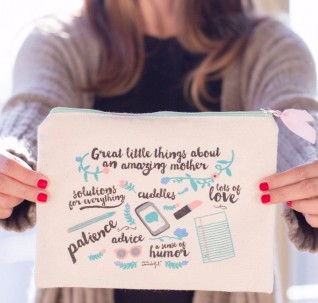 Great little things about
an amazing mother
solutions
for everything
cuddles
lots of
love
patience
advice
a sense of
humor